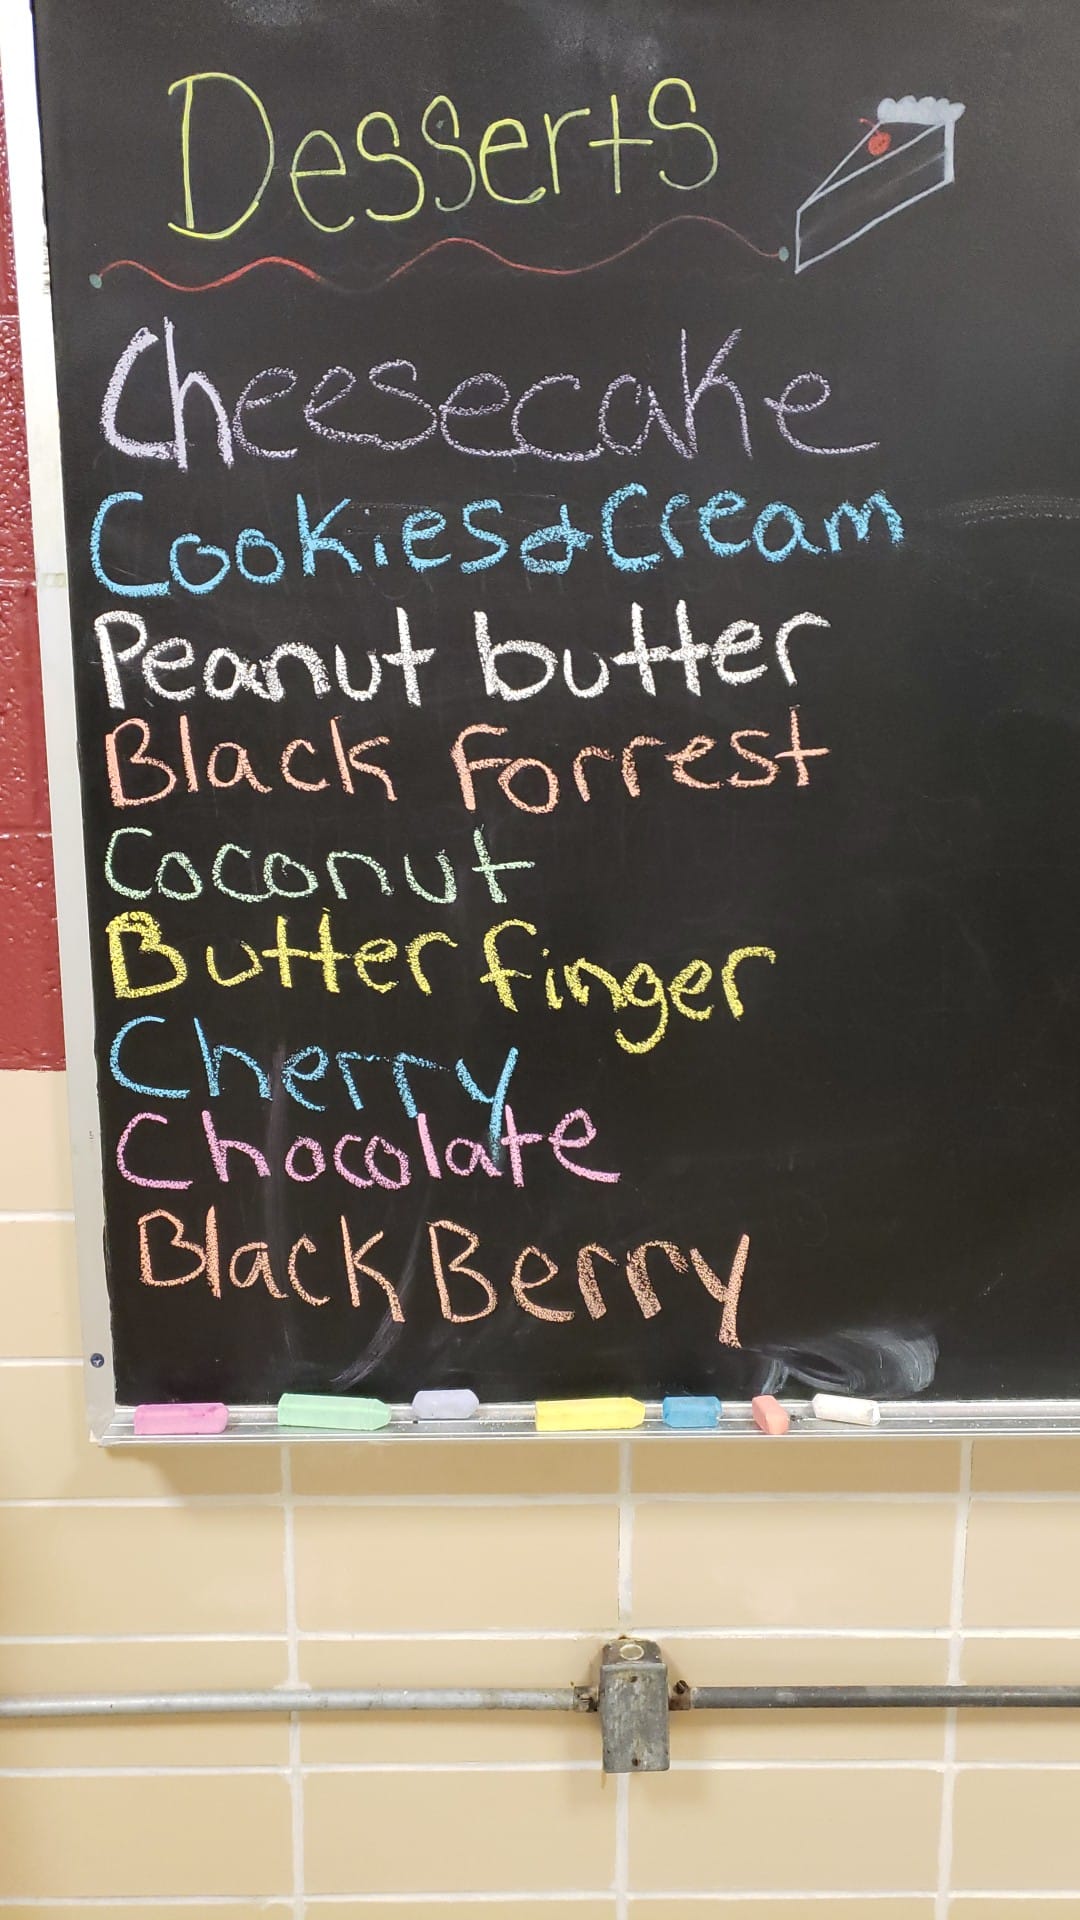 Desserts
Cheesecake
Cookies & Cream
Peanut butter
Black Forrest
Coconut
Butter finger
Cherry
Chocolate
Black Berry